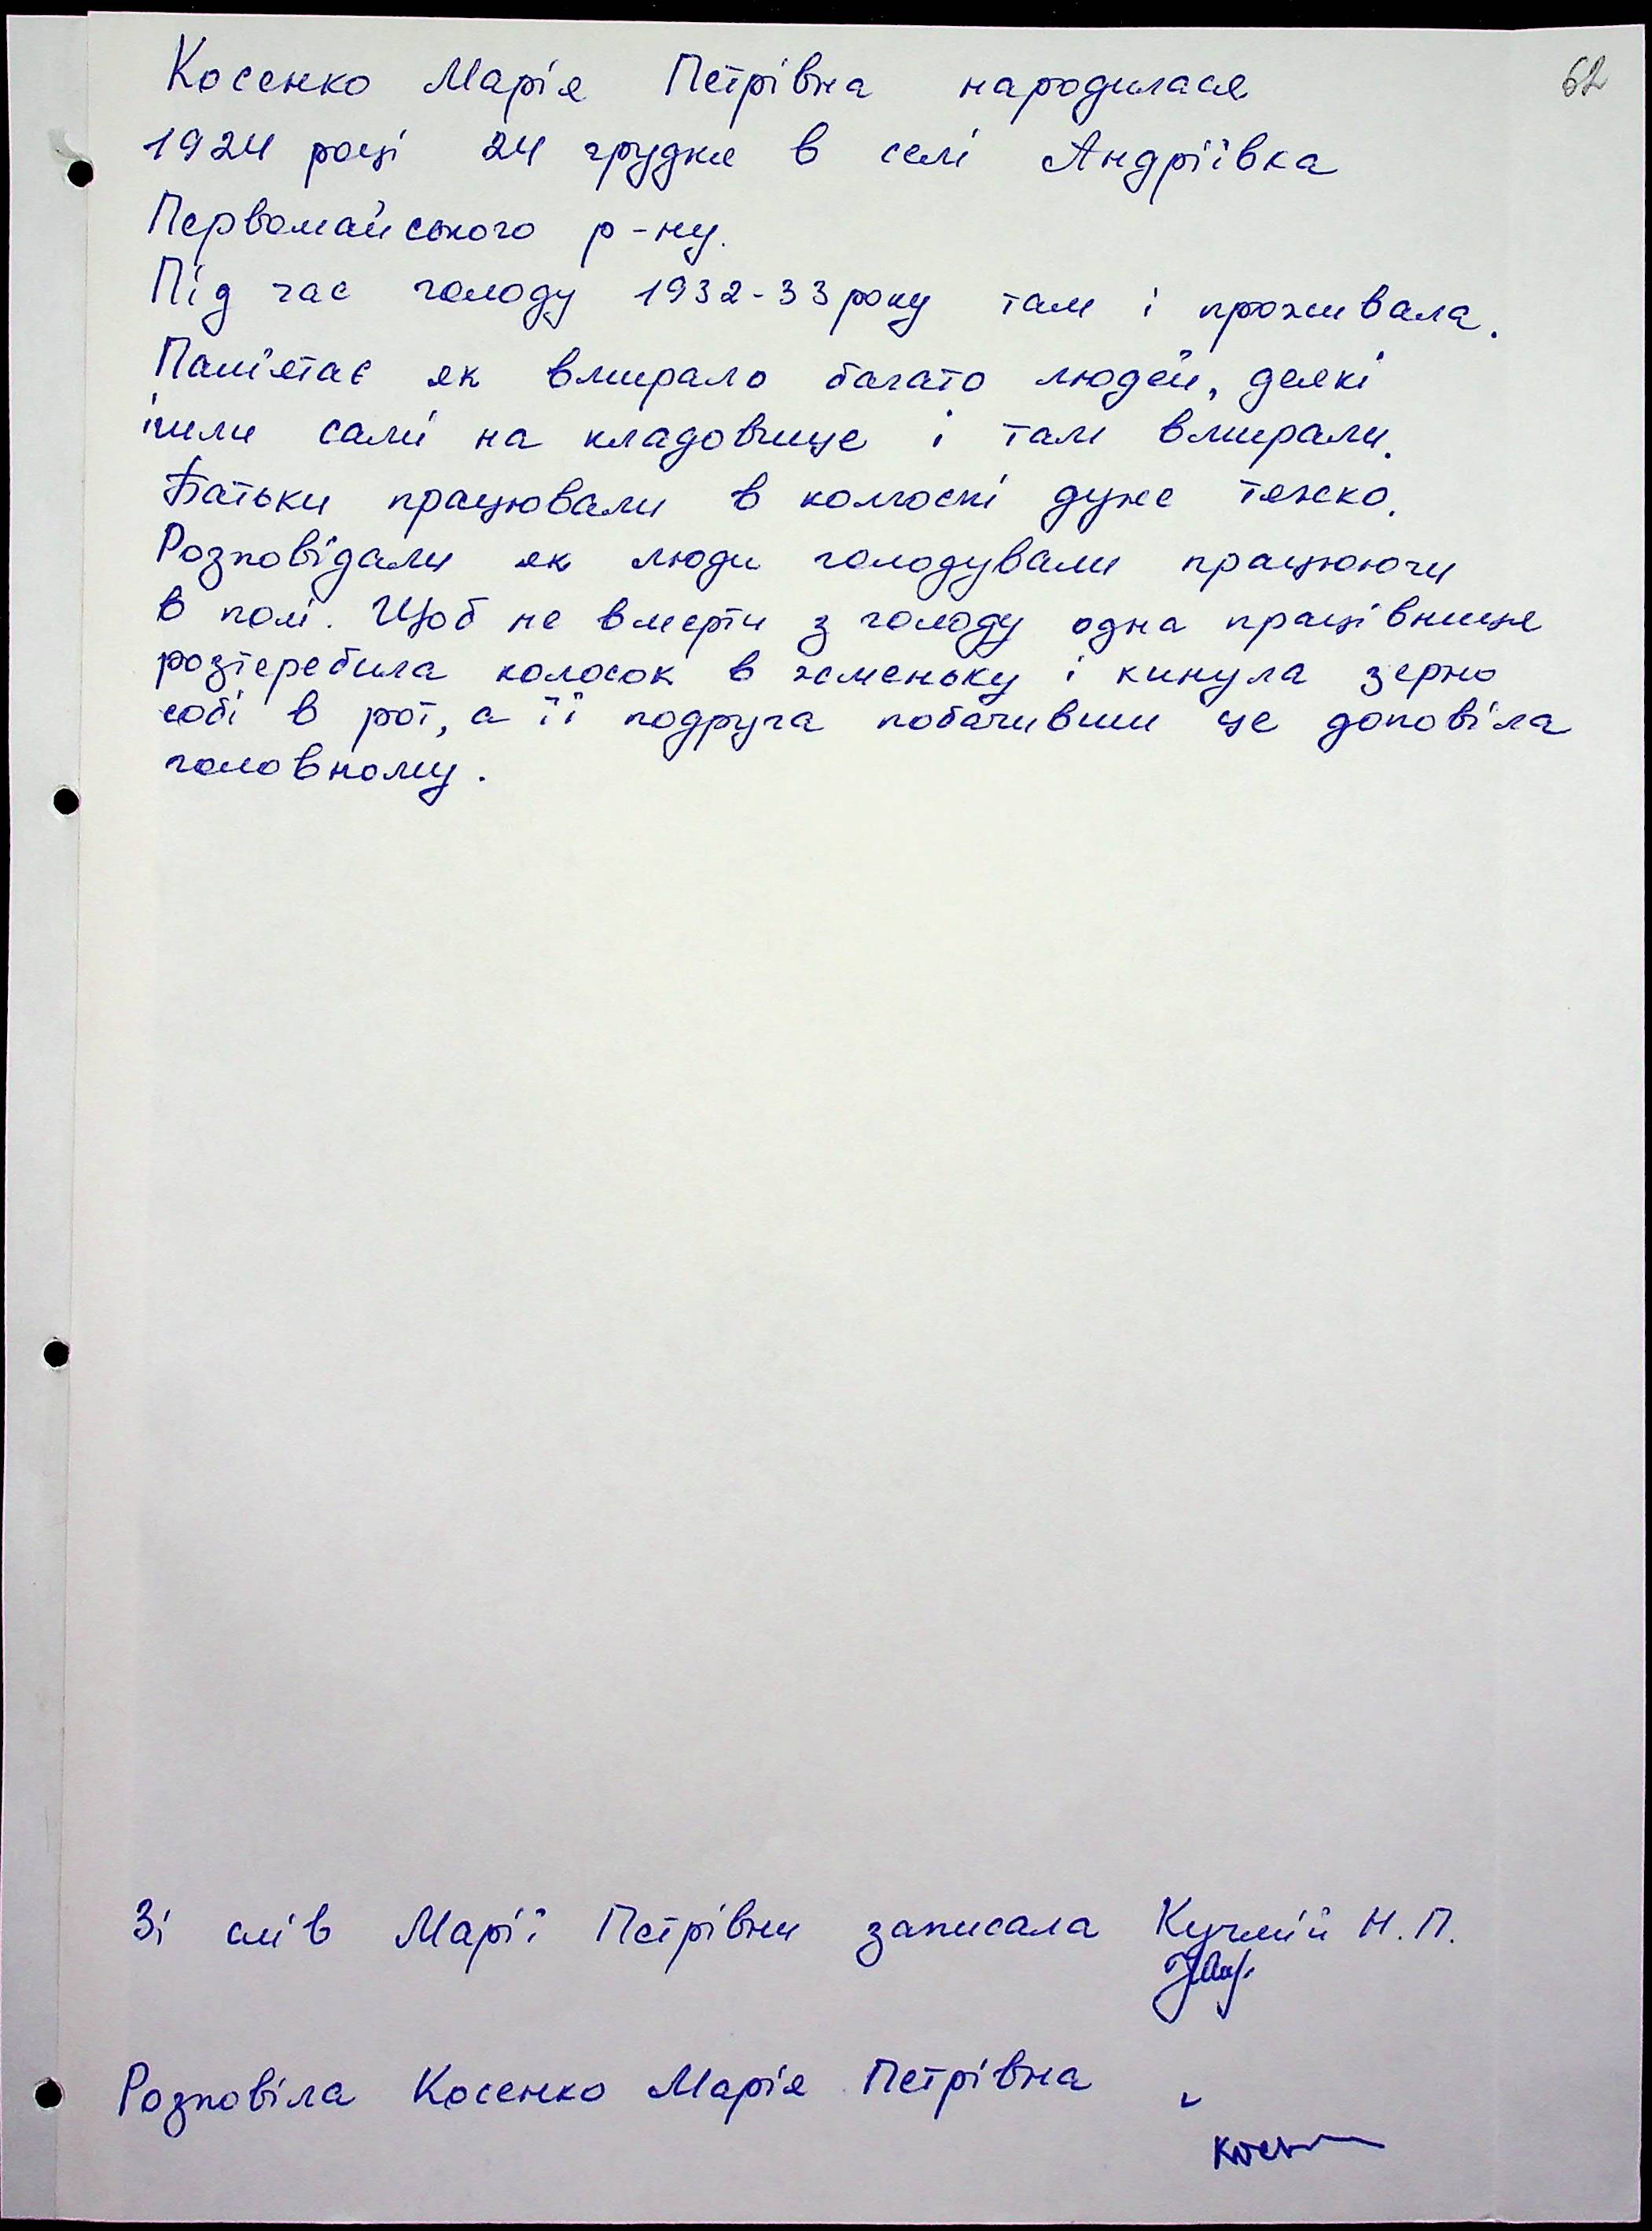 62
Косенко Марія Петрівна народилася
1924 році 24 грудня в селі Андріївка
Первомайського р-ну.
Під час голоду 1932-33 року там і проживала.
Пам'ятає як вмирало багато людей, деякі
ішли самі на кладовище і там вмирали.
Батьки працювали в колгоспі дуже тяжко.
Розповідали як люди голодували працюючи
в полі. Щоб не вмерти з голоду одна працівниця
розтеребила колосок в жменьку і кинула зерно
собі в рот, а її подруга побачивши це доповіла
головному.
Зі слів Марії Петрівни записала Кучмій Н.П.
Розповіла Косенко Марія Петрівна